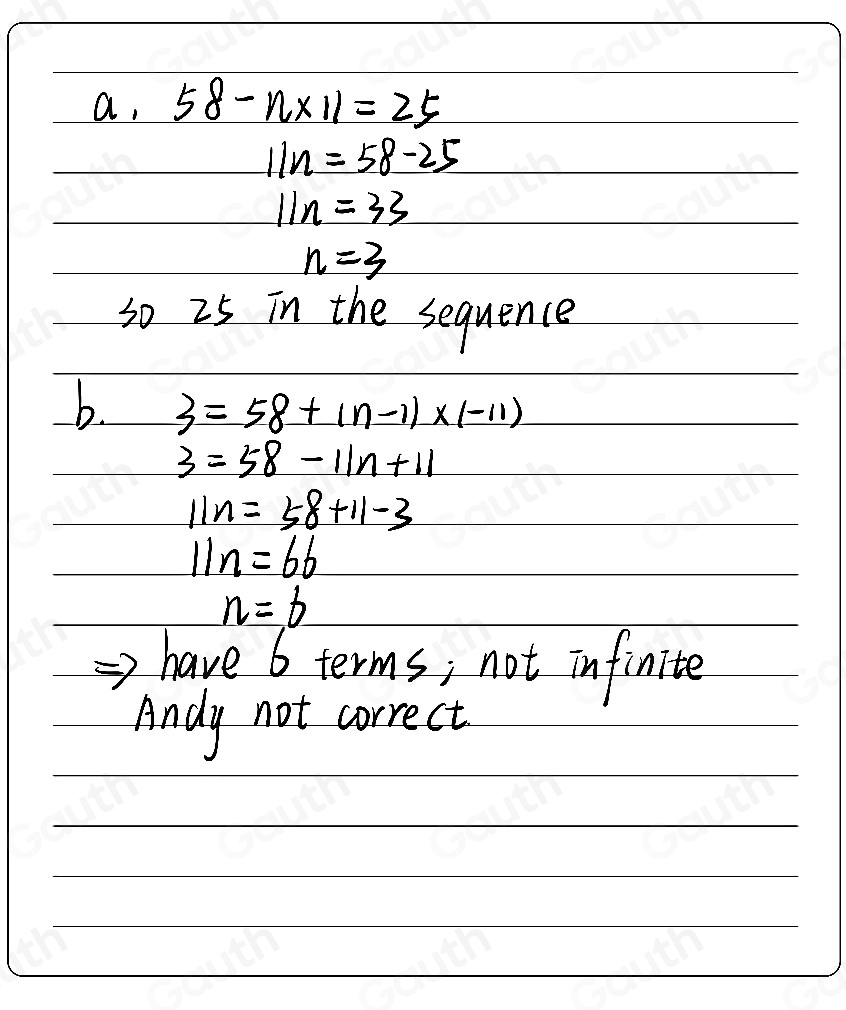 a. 58-n×11=25
11n=58-25
11n=33
n=3
so 25 in the sequence
b. 3=58+(n-1)×(-11)
3=58-11n+11
11n=58+11-3
11n=66
n=6
⇒ have 6 terms, not infinite
Andy not correct.